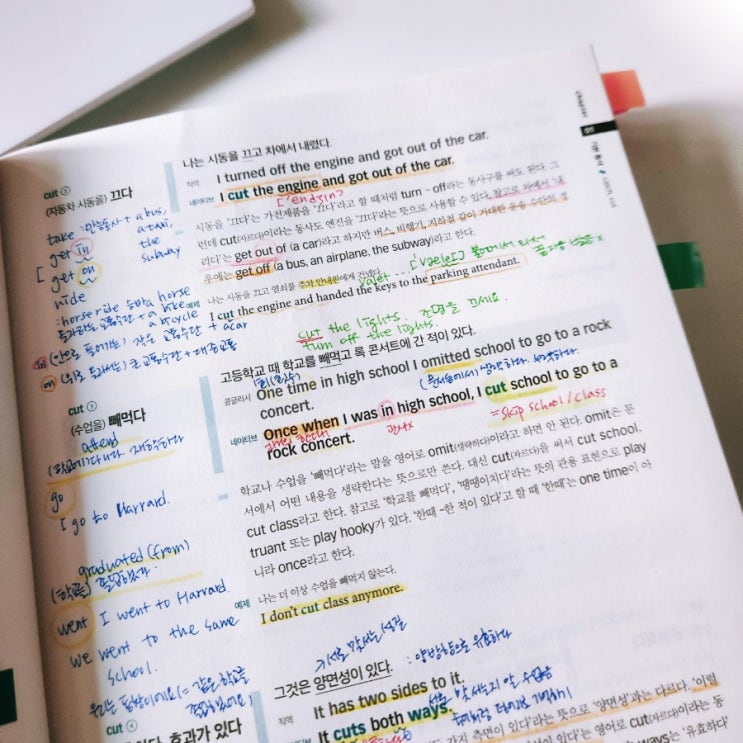 chapter
05
기본 동사
catch, cut
cut ②
(자동차 시동을) 끄다
나는 시동을 끄고 차에서 내렸다.
직역 I turned off the engine and got out of the car.
네이티브 I cut the engine and got out of the car.
['endʒin]
시동을 '끄다'는 가전제품을 '끄다'라고 할 때처럼 turn – off라는 동사구를 써도 된다. 그
런데 cut(자르다)이라는 동사도 엔진을 '끄다'라는 뜻으로 사용할 수 있다. 참고로 차에서 '내
리다'는 get out of (a car)라고 하지만 버스, 비행기, 지하철 같이 거대한 운송 수단의 경
우에는 get off (a bus, an airplane, the subway)라고 한다.
나는 시동을 끄고 열쇠를 주차 안내원에게 건넸다.
valet
예제 I cut the engine and handed the keys to the parking attendant.
cut the lights. 조명을 끄세요.
turn off the lights.
take : 만능동사 + a bus,
a taxi,
get in the
[ get on subway
ride
: horse ride + on a horse
+ a bike
a bicycle
in 작은 교통수단 + a car
on 큰 교통수단 + 대중교통
cut ③
(수업을) 빼먹다
고등학교 때 학교를 빼먹고 록 콘서트에 간 적이 있다.
콩글리시 One time in high school I omitted school to go to a rock
concert.
네이티브 Once when I was in high school, I cut school to go to a
rock concert.
관사x
= skip school/class
학교나 수업을 '빼먹다'라는 말을 영어로 omit(생략하다)이라고 하면 안 된다. omit은 문
서에서 어떤 내용을 생략한다는 뜻으로만 쓴다. 대신 cut(자르다)을 써서 cut school,
cut class라고 한다. 참고로 '학교를 빼먹다', '땡땡이치다'라는 뜻의 관용 표현으로 play
truant 또는 play hooky가 있다. '한때 ~한 적이 있다'고 할 때 '한때'는 one time이 아
니라 once라고 한다.
나는 더 이상 수업을 빼먹지 않는다.
예제 I don't cut class anymore.
attend
(학교에) 다니다. 재학하다
go
I go to Harvard.
graduated (from)
(학교를) 졸업했다.
went I went to Harvard.
we went to the same
school.
우리는 동창이에요 (= 같은 학교를
졸업했어요)
cut ④
효과가 있다
그것은 양면성이 있다.
: 양방향으로 유효하다
직역 It has two sides to it.
It cuts both ways.
가지 측면이 있다'라는 뜻으로 '양면성'과는 다르다. '이럴
있다'는 영어로 cut(자르다)이라는 동
ways는 '유효하다'